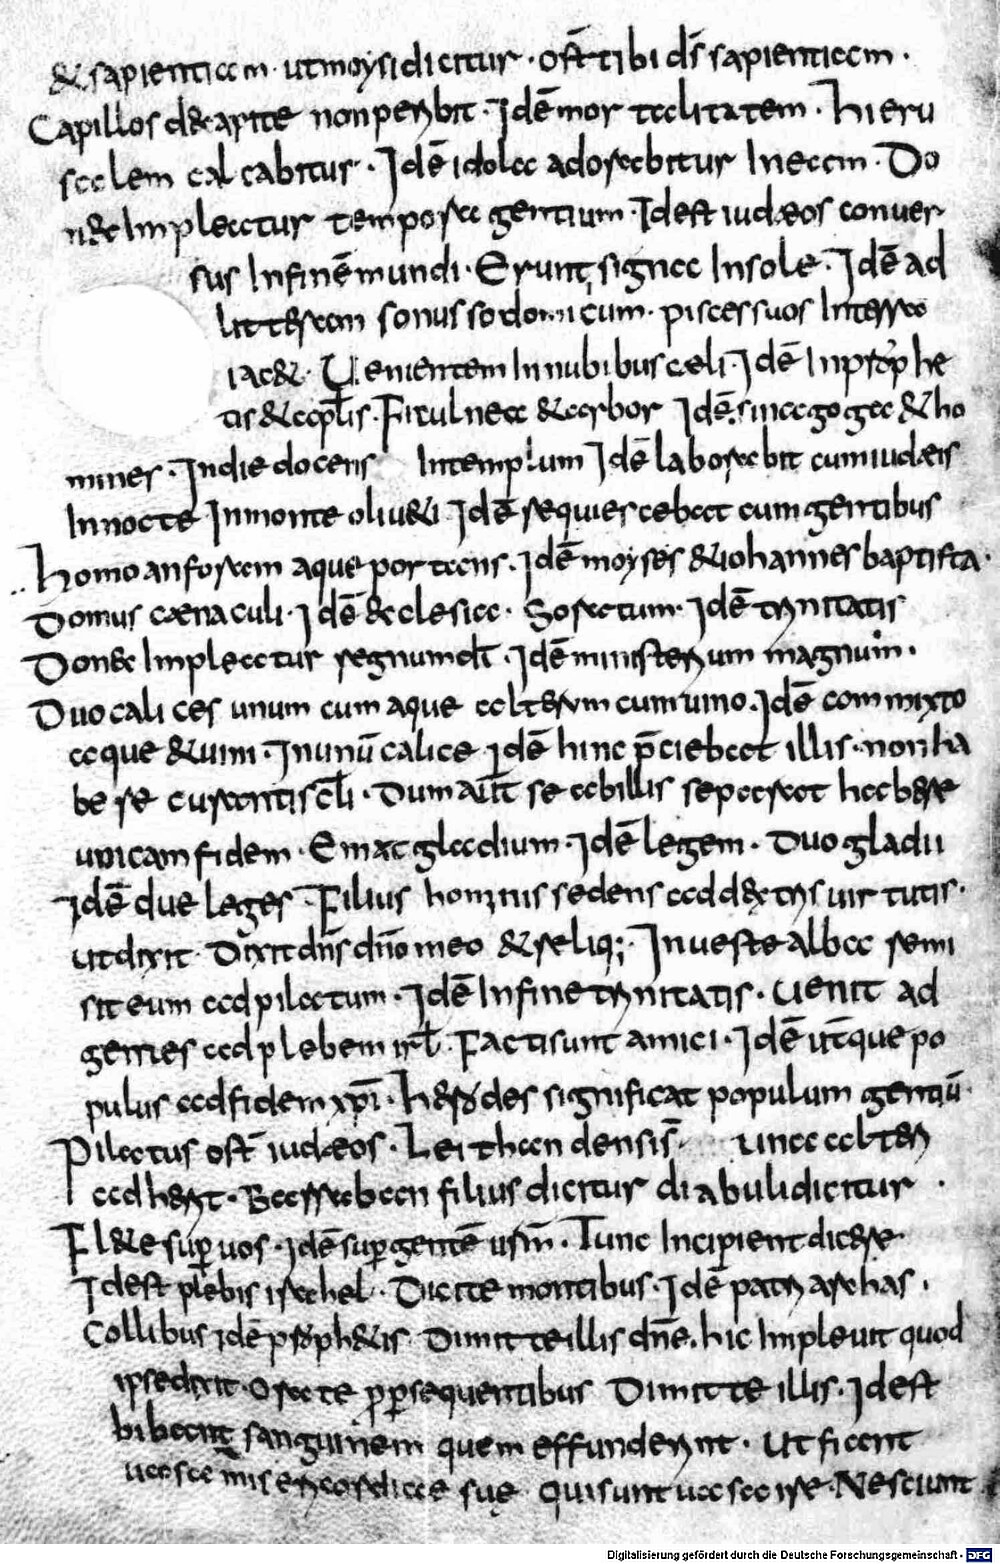 & sapientiam · ut moysi dicitur · ost tibi ds sapientiam ·
Capillos de capite non peribit · Idē mortalitatem · hieru
salem calcabitur · Idē idola adorabitur In eam · Do
nec Impleatur tempora gentium · Idest iudæos conuer
sus Infinē mundi · Erunt signa In sole · Idē ad
litteram sonus sodomicum · pisces suos
iac& · Uenientem In nubibus cæli · Idē In prophe
tis & aptlis · Ficulnea & arbor Idē sinagogae & ho
mines · In die docens In templum Idē laborabit cum iudæis
In nocte In monte oliu&i Idē requiescebat cum gentibus
homo anforam aque portans · Idē moyses & iohannes baptista ·
Domus cænaculi · Idē æclesia · Soratum · Idē trinitatis
Donec Impleatur regnum dī · Idē ministerium magnum ·
Duo calices unum cum aque alterum cum uino · Idē commixto
aque & uini · In unū calice Idē hinc p̄ciebat illis · non ha
bere curam tis cli · Dum aut̄ se ab illis separat haber&
unicam fidem · Emat gladium · Idē legem · Duo gladii
Idē due leges · Filius hominis sedens ad dextris uirtutis ·
ut dixit · Dixit dns dno meo & reliq; · In ueste alba remi
sit eum ad pilatum · Idē In fine trinitatis · Uenit ad
gentes ad plebem isrl · Facti sunt amici · Idē ut̄que po
pulus ad fidem xpī · herodes significat populum gentiū
Pilatus ost iudæos · una alteri
adherit · Barraban filius dicitur diabuli dicitur ·
Flete super uos · Idē super gentē usm̄ · Tunc Incipient dicere ·
Idest plebis israhel · Dicite montibus · Idē patriarchas ·
Collibus Idē proph&is Dimitte illis dne · hic Impleuit quod
ipse dixit · Orate p persequentibus Dimitte illis · Idest
bibant sanguinem quem effunderint · Ut fiant
uasa misericordiae suę qui sunt uasa irę · Nesciunt
Digitalisierung gefördert durch die Deutsche Forschungsgemeinschaft · DFG